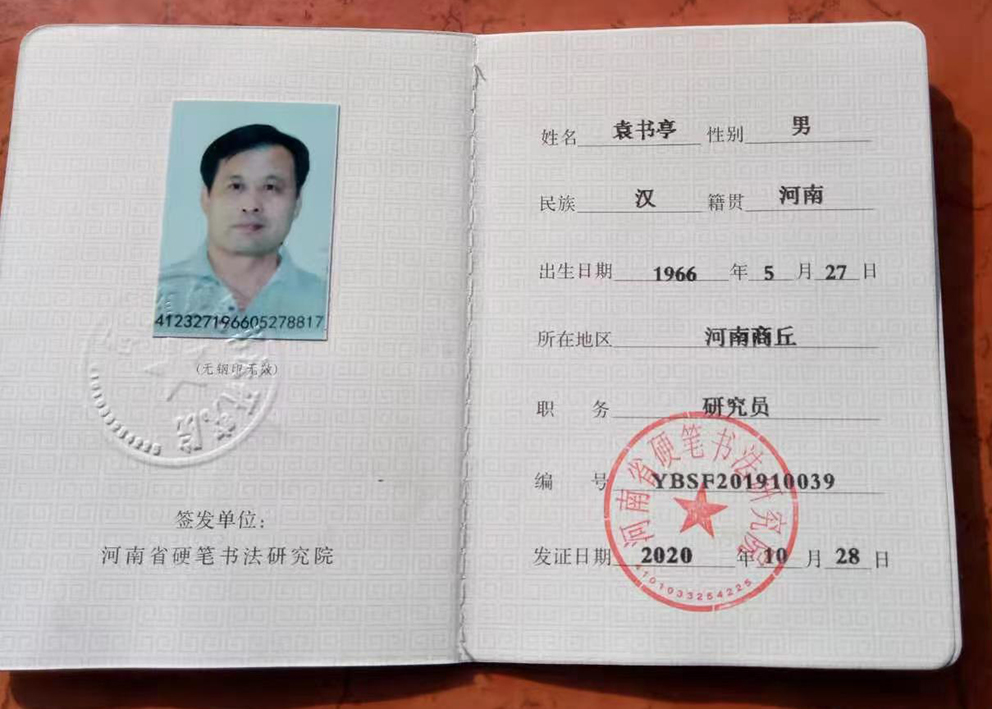 412327196605278817
(无钢印无效)
签发单位:
河南省硬笔书法研究院
姓名 袁书亭 性别 男
民族 汉 籍贯 河南
出生日期 1966 年 5 月 27 日
所在地区 河南商丘
职 务 研究员
编 号 YBSF201910039
发证日期 2020 年 10 月 28 日
河南省硬笔书法研究院
4101033254225